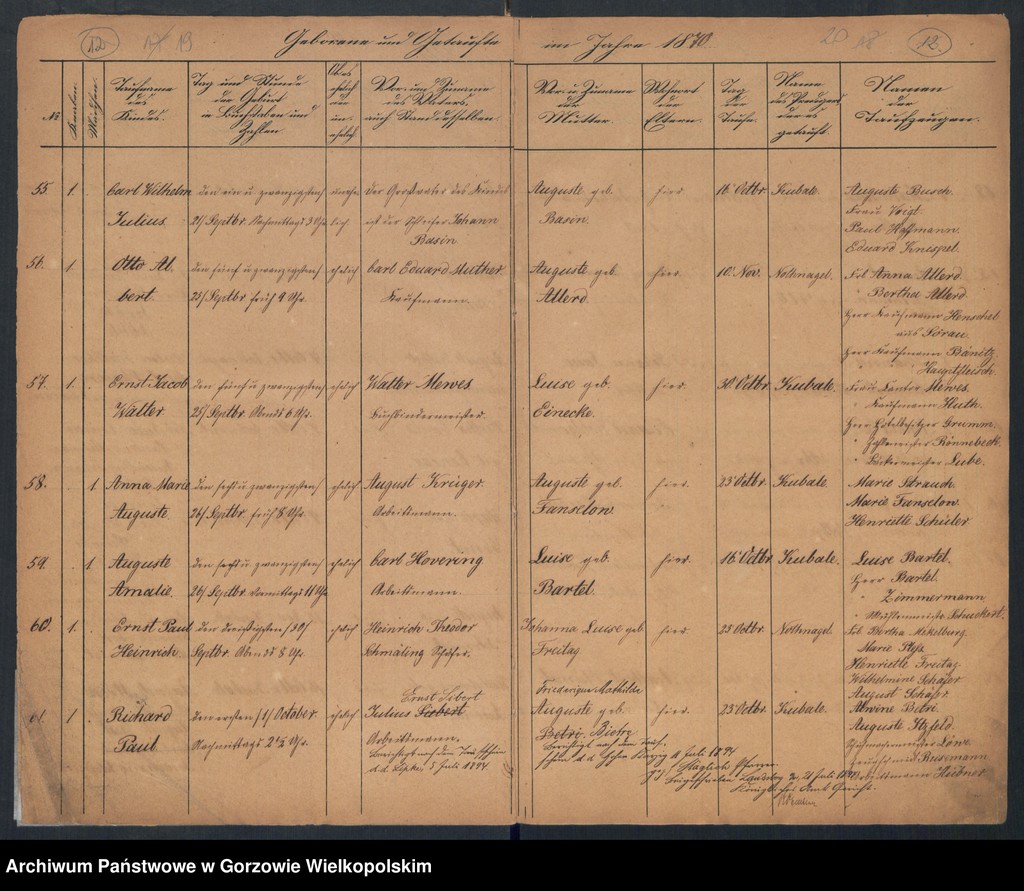 12. 19 Geborene und Getaufte im Jahre 1870. 20 18 12.
No.
Knaben.
Mädchen.
Taufname
des
Kindes.
Tag und Stunde
der Geburt
in Buchstaben und
Zahlen
Ob es
ehelich
oder
un-
ehelich.
Vor- und Zuname
des Vaters,
auch Stand desselben.
Vor- u. Zuname
der
Mutter.
Wohnort
der
Eltern.
Tag
der
Taufe.
Name
des Predigers
der es
getauft.
Namen
der
Taufzeugen.
55 1. Carl Wilhelm den ein u. zwanzigsten unehe- Der Großvater des Kindes Auguste geb. hier. 16 Octbr. Kubale. Auguste Busch.
Julius. 21/ Septbr. Nachmittags 3 Uhr lich. ist der Schleifer Johann Basin. Frau Voigt.
Basin Paul Hoffmann.
Eduard Knispel.
56. 1. Otto Al- den fünf u. zwanzigsten ehelich Carl Eduard Muther Auguste geb. hier 10. Nov. Nothnagel. Frl. Anna Allerd.
bert. 25/ Septbr. früh 9 Uhr. Kaufmann. Allerd. " Bertha Allerd.
Herr Kaufmann Henschel
aus Sorau.
Herr Kaufmann Bänitz.
" " Hauptfleisch.
57. 1. Ernst Jacob den fünf u. zwanzigsten ehelich Walter Mewes Luise geb. hier. 30 Octbr. Kubale. Frau Cantor Mewes.
Walter 25/ Septbr. Abends 6 Uhr. Buchbindermeister. Einecke. " Kaufmann Huth.
Herr Hotelbesitzer Grumm.
" Zahlmeister Rönnebeck.
" Bäckermeister Lube.
58. 1. Anna Marie den sechs u. zwanzigsten ehelich August Krüger Auguste geb. hier. 23 Octbr. Kubale. Marie Strauch.
Auguste. 26/ Septbr. früh 8 Uhr. Arbeitsmann. Fanselow. Marie Fanselow.
Henriette Schüler
59. 1 Auguste den sechs u. zwanzigsten ehelich Carl Hovering Luise geb. hier. 16 Octbr. Kubale. Luise Bartel.
Amalie. 26/ Septbr. Vormittags 11 Uhr. Arbeitsmann. Bartel. Herr Bartel.
" Zimmermann
" Mühlenmeister Schuckert.
60. 1. Ernst Paul den dreißigsten /30/ ehelich Heinrich Theodor Johanna Luise geb. hier. 23 Octbr. Nothnagel. Frl. Bertha Mekelburg.
Heinrich. Septbr. Abends 8 Uhr. Schmäling Schäfer. Freitag Marie Pleß.
Henriette Freitag.
Wilhelmine Schäfer
August Schäfer.
Ernst Sebert Friederique Mathilde
61. 1 Richard den ersten /1/ October ehelich Julius Siebert Auguste geb. hier. 23 Octbr. Kubale. Alwine Betri.
Paul. Nachmittags 2½ Uhr. Arbeitsmann. Betri. Bietri Auguste Itzfeld.
Berichtigt nach dem Taufschein
d. d. Lipke 5 Juli 1894.
Berichtigt nach dem Tauf-
schein d. d. Hohen 11 Juli 1894
Landsberg 21 Juli 1894
Königl. Amt Gericht.
Schuhmachermeister Löwe
Zeugschmied Reisemann
Arbeitsmann Hübner